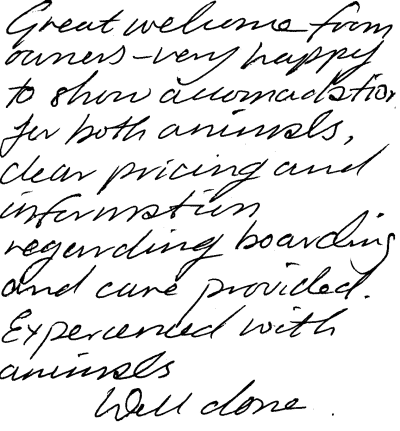 Great welcome from
owners - very happy
to show accomadation
for both animals,
clear pricing and
information
regarding boarding
and care provided.
Experienced with
animals
Well done.